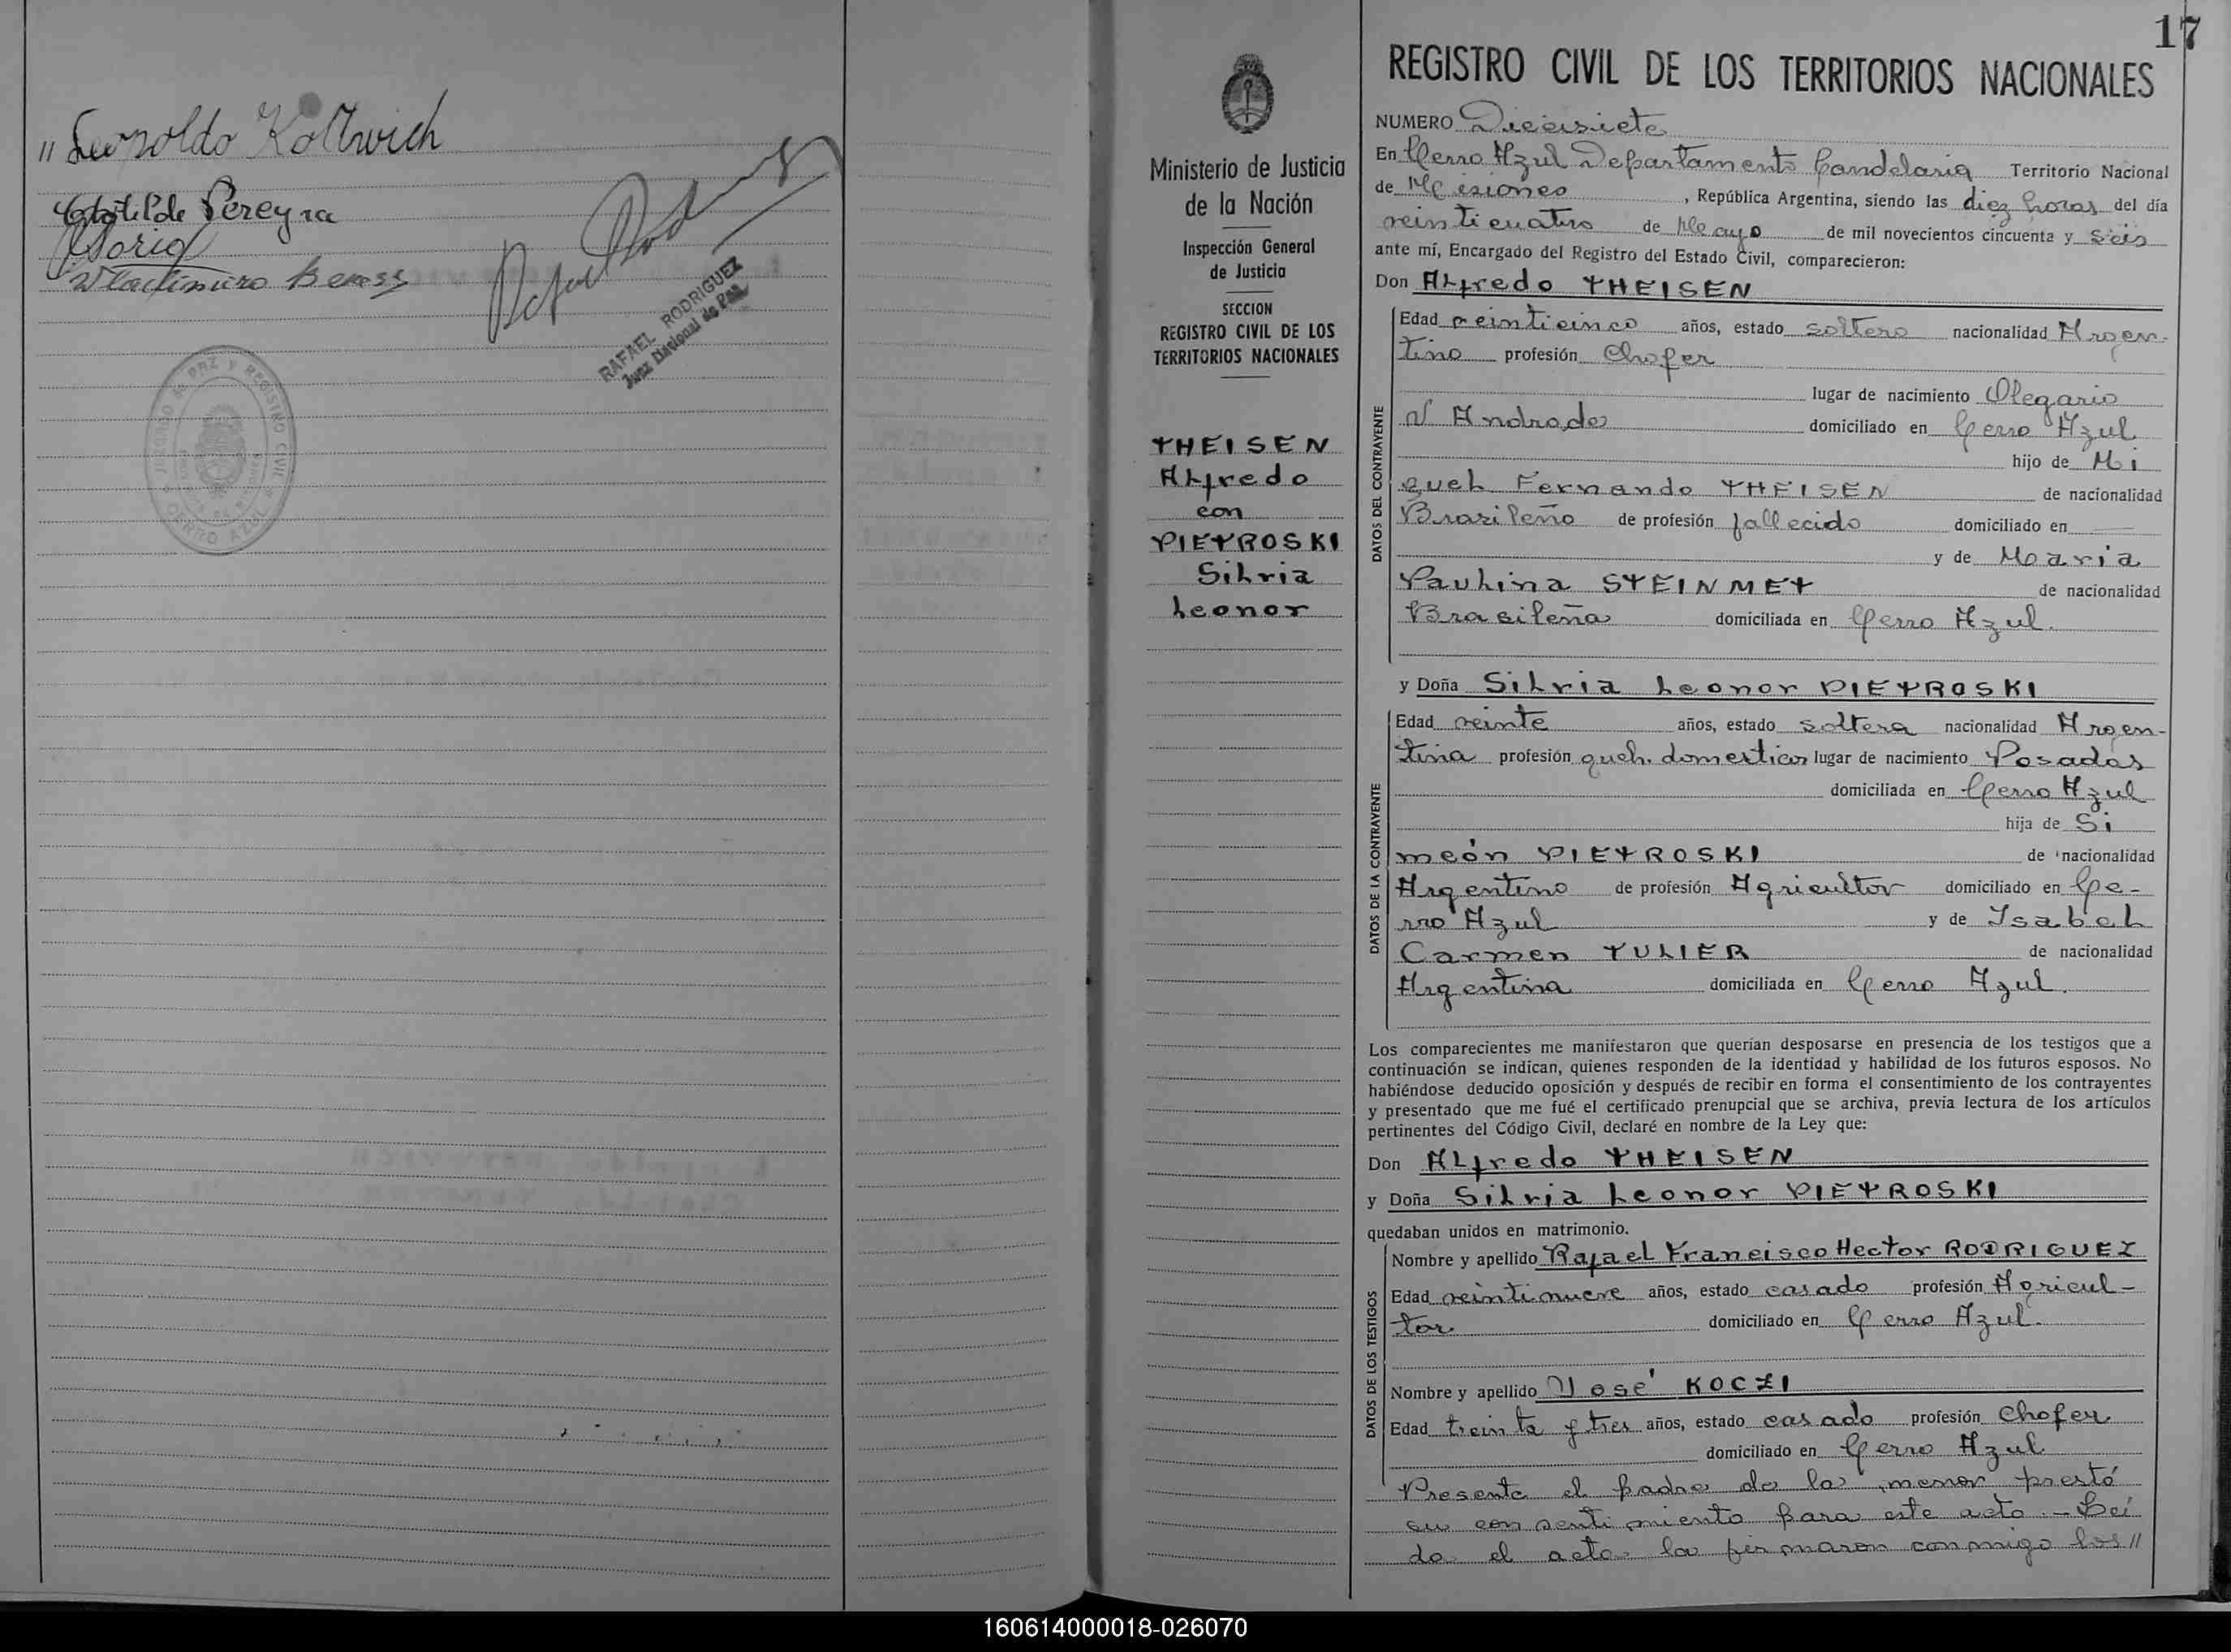 " Leopoldo Koltwich
Clotilde Pereyra
Wladimiro Beress
RAFAEL RODRIGUEZ
Juez Nacional de Paz
JUZGADO DE PAZ Y REGISTRO CIVIL
CERRO AZUL
17
REGISTRO CIVIL DE LOS TERRITORIOS NACIONALES
NUMERO Diecisiete
En Cerro Azul Departamento Candelaria Territorio Nacional
de Misiones, República Argentina, siendo las diez horas del día
veinticuatro de Mayo de mil novecientos cincuenta y seis
ante mí, Encargado del Registro del Estado Civil, comparecieron:
Don Alfredo THEISEN
Edad veinticinco años, estado soltero nacionalidad Argen-
tino profesión Chofer
lugar de nacimiento Olegario
V Andrade domiciliado en Cerro Azul
hijo de Mi
guel Fernando THEISEN de nacionalidad
Brasileño de profesión fallecido domiciliado en
y de Maria
Paulina STEINMET de nacionalidad
Brasileña domiciliada en Cerro Azul.
y Doña Silvia Leonor PIETROSKI
Edad veinte años, estado soltera nacionalidad Argen-
tina profesión queh. domesticos lugar de nacimiento Posadas
domiciliada en Cerro Azul
hija de Si
meón PIETROSKI de nacionalidad
Argentino de profesión Agricultor domiciliado en Ce-
rro Azul y de Isabel
Carmen TULIER de nacionalidad
Argentina domiciliada en Cerro Azul.
Los comparecientes me manifestaron que querían desposarse en presencia de los testigos que a
continuación se indican, quienes responden de la identidad y habilidad de los futuros esposos. No
habiéndose deducido oposición y después de recibir en forma el consentimiento de los contrayentes
y presentado que me fué el certificado prenupcial que se archiva, previa lectura de los artículos
pertinentes del Código Civil, declaré en nombre de la Ley que:
Don Alfredo THEISEN
y Doña Silvia Leonor PIETROSKI
quedaban unidos en matrimonio.
Nombre y apellido Rafael Francisco Hector RODRIGUEZ
Edad veintinueve años, estado casado profesión Agricul-
tor domiciliado en Cerro Azul.
Nombre y apellido José KOCZI
Edad treinta y tres años, estado casado profesión Chofer
domiciliado en Cerro Azul
Presente el padre de la menor prestó
su consentimiento para este acto.- Leí
da el acta la firmaron conmigo los "
Ministerio de Justicia
de la Nación
Inspección General
de Justicia
SECCION
REGISTRO CIVIL DE LOS
TERRITORIOS NACIONALES
THEISEN
Alfredo
con
PIETROSKI
Silvia
Leonor
DATOS DEL CONTRAYENTE
DATOS DE LA CONTRAYENTE
DATOS DE LOS TESTIGOS
160614000018-026070